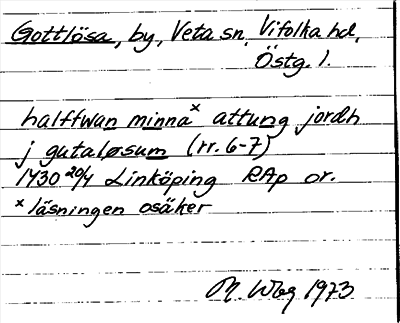 Gottlösa, by, Veta sn, Vifolka hd,
Östg. l.
halffwan minnaˣ attung jordh
j gutaløsum (rr. 6-7)
1430 20/4 Linköping RAp or.
ˣ läsningen osäker
M. Wbg 1973